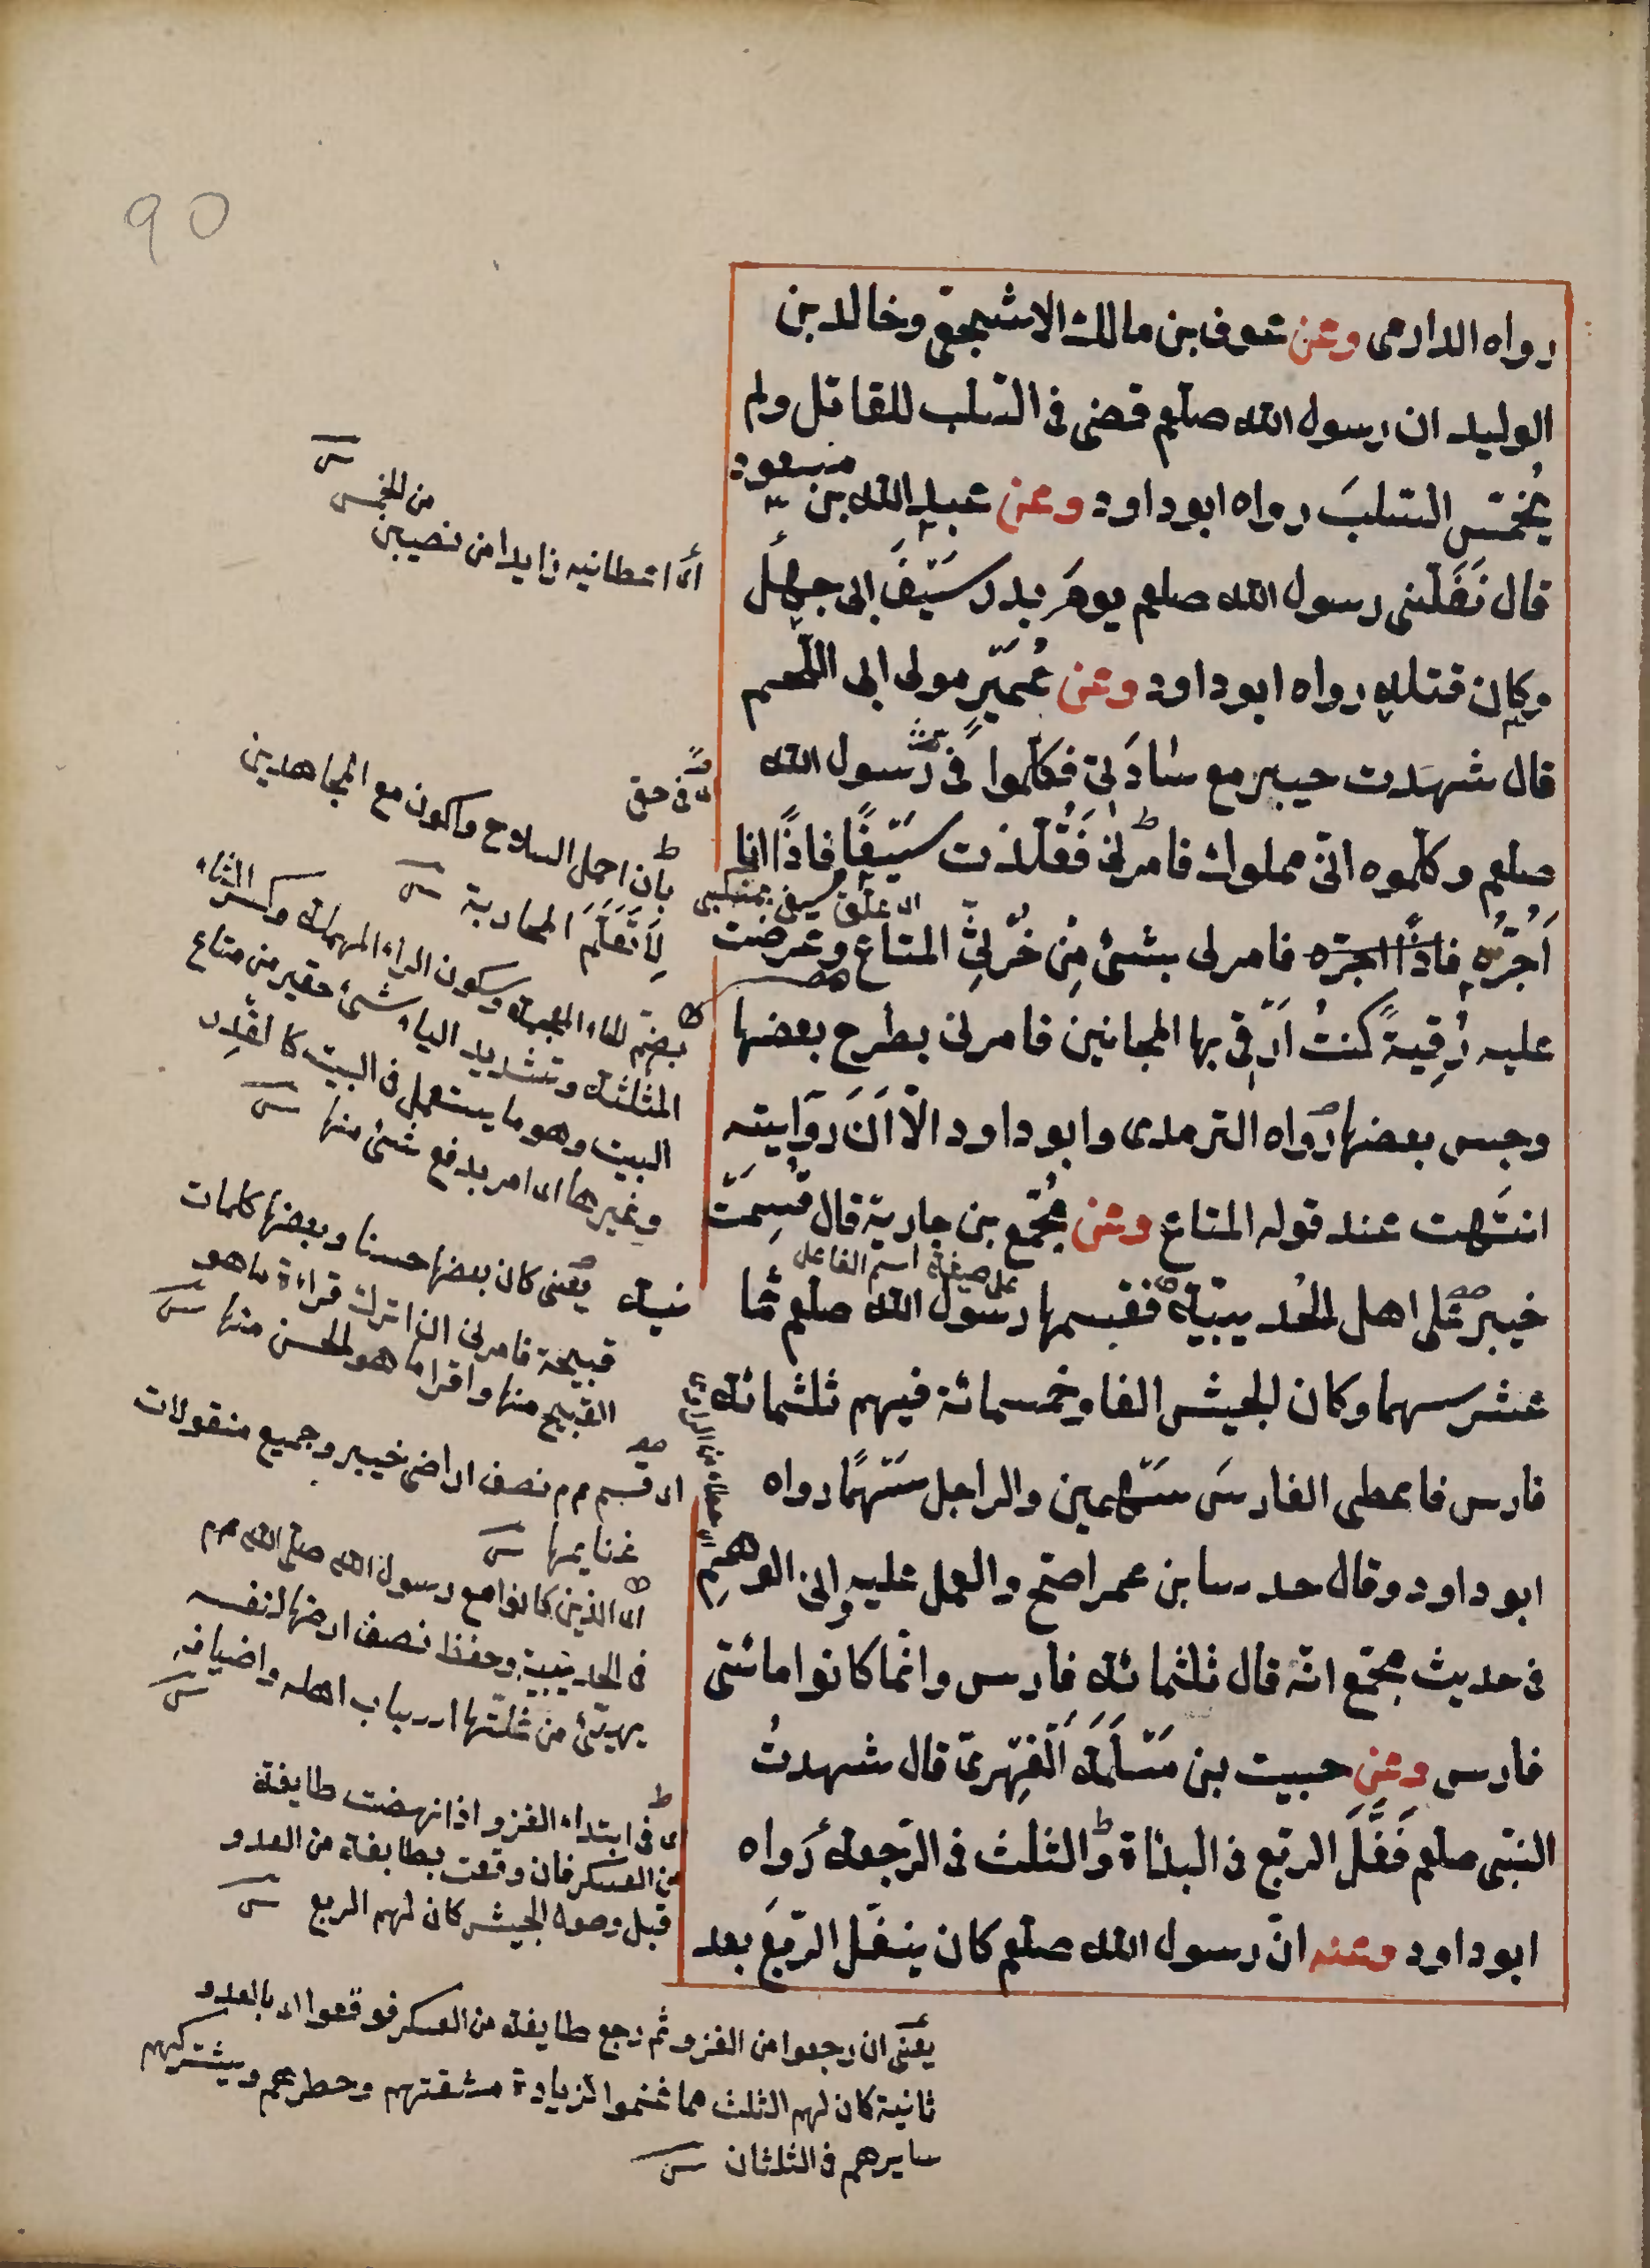 90
رواه الدارمى وعن عوف بن مالك الاشجعى وخالد بن
الوليد ان رسول الله صلعم قضى فى السّلب للقاتل ولم
يُخمّس السّلبَ رواه ابو داود وعن عبد الله بن مسعود
قال نَفَلَنى رسول الله صلعم يومَ بدر سَيْفَ ابى جهلٍ
وكان قتله رواه ابو داود وعن عُمَيْرٍ مولى ابى اللّحم
قال شهدت خيبر مع سادَتى فكلّموا فىَّ رسول الله
صلعم وكلّموه انّى مملوك فامرنى فَقُلّدت سَيْفًا فاذًا انا
اَجُرّه فاذًا اجرّه فامر لى بشئ مِنْ خُرْثِىّ المتاع وعرضت
عليه رُقيةً كنتُ اَرْقى بها المجانين فامرنى بطرح بعضها
وحبس بعضها رواه الترمدى وابو داود الّا اَنَّ روايته
انتَهت عند قوله المتاع وعن مُجَمّع بن جارية قال قُسِمَتْ
على صيغة اسم الفاعل
خيبر على اهل الحُديبيّة فقسمها رسول الله صلعم ثما نية
عشر سهما وكان الجيش الفا وخمسمائة فيهم ثلثمائة
فارس فاعطى الفارسَ سَهْمين والراجل سَهْمًا رواه
ابو داود وقال حد رسا بن عمر اصحّ والعمل عليه واتى الوهم
فى حديث مجمّع انّه قال ثلثمائة فارس وانّما كانوا مائتى
فارس وعن حبيب بن مَسْلَمَة الفِهْرىّ قال شهدتُ
النبّى صلعم نَفَّلَ الربع فى البداة والثلث فى الرّجعة رواه
ابو داود وعنه انّ رسول الله صلعم كان ينفّل الرّبعَ بعد
اى اعطانيه زايدا من نصيبى
من الخمس
اى فى حقى
بان احمل السلاح واكون مع المجاهدين
لِاَتَعَلَّمَ المحاربة
اى علّق سيفى بمنكبى
بضمّ الخاء المعجمة وسكون الراء المهملة وكسر الثاء
المثلثة وتشديد الياء شئ حقير من متاع
البيت وهو ما يستعمل فى البيت كالقِدر
وغيرها اى امر بدفع شئ منها
يعنى كان بعضها حسنا وبعضها كلمات
قبيحة فامرنى ان اترك قراءة ما هو
القبيح منها واقرا ما هو الحسن منها
اى قسم م م نصف اراضى خيبر وجميع منقولات
غنايمها
اى الذين كانوا مع رسول الله صلى الله عم
فى الحديبية وحفظ نصف ارضها لنفسه
يهيّئ من غلّتها ارباب اهله واضيافه
اى فى ابتداء الغزو اذا نهضت طايفة
من العسكر فان وقعت بطايفة من العدو
قبل وصول الجيش كان لهم الربع
يعنى ان رجعوا من الغزو ثم رجع طايفة من العسكر فوقعوا اى بالعدو
ثانية كان لهم الثلث مما غنموا لزيادة مشقتهم وخطرهم ويشتركهم
سايرهم فى الثلثان